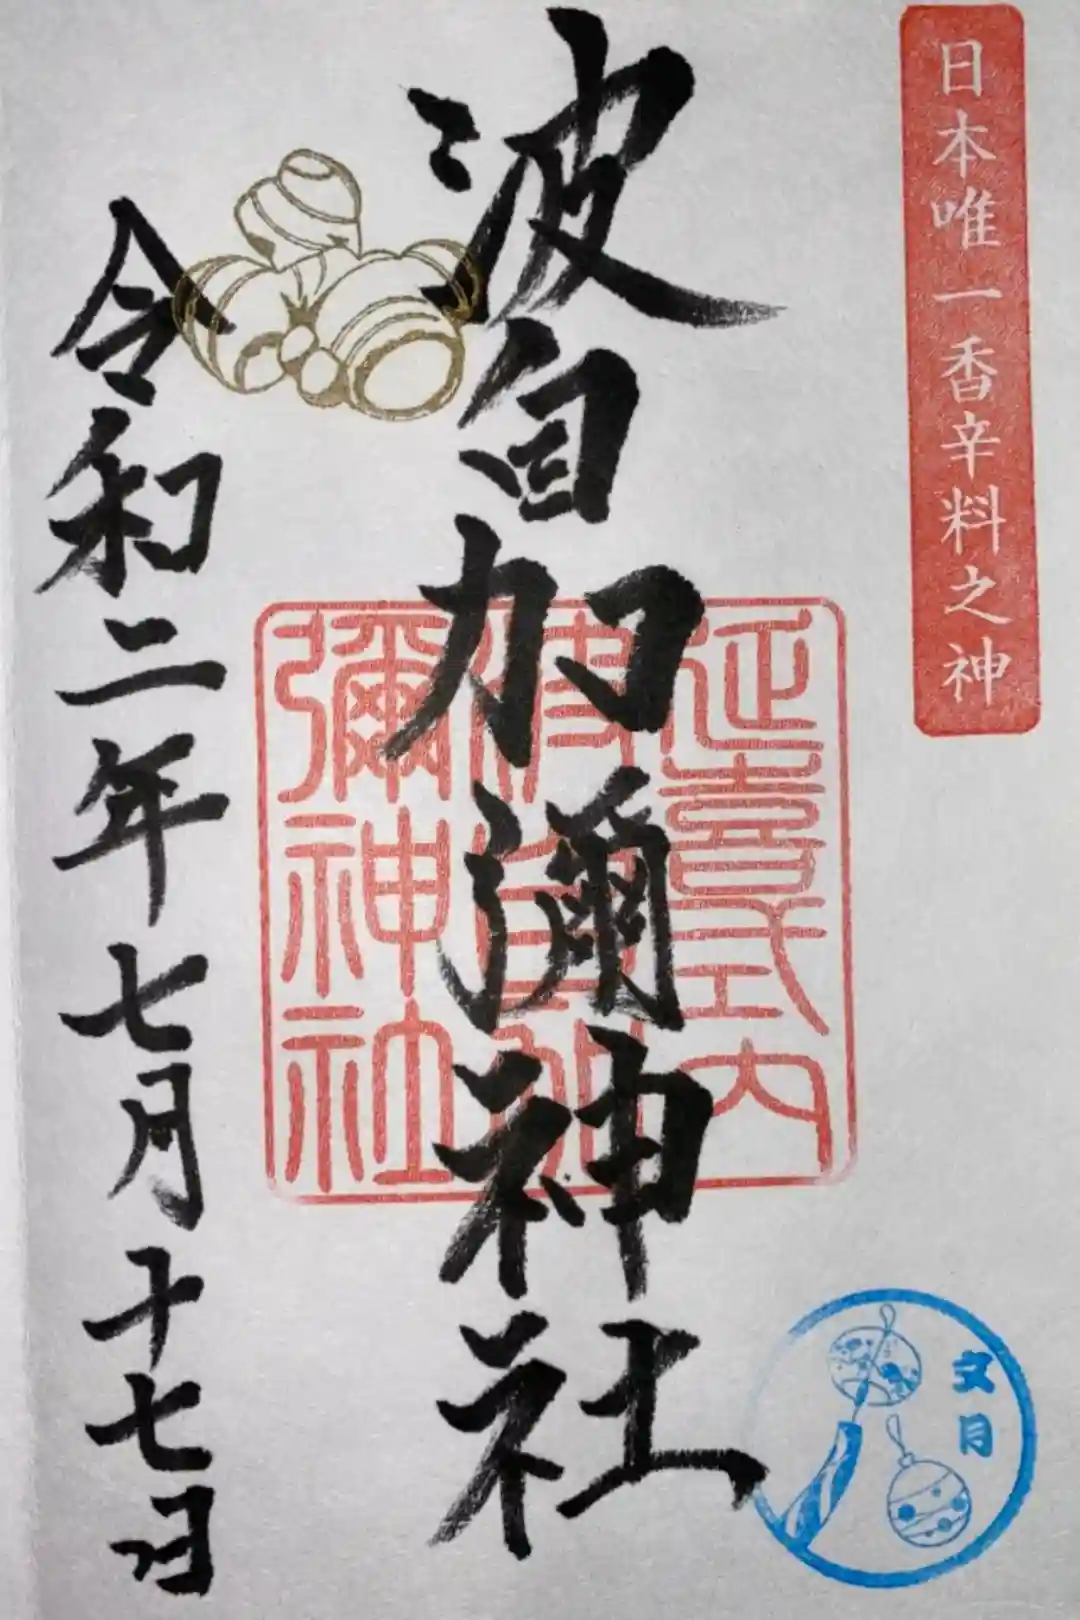 日本唯一香辛料之神
波自加彌神社
延喜式内
波自加
彌神社
令和二年七月十七日
文月